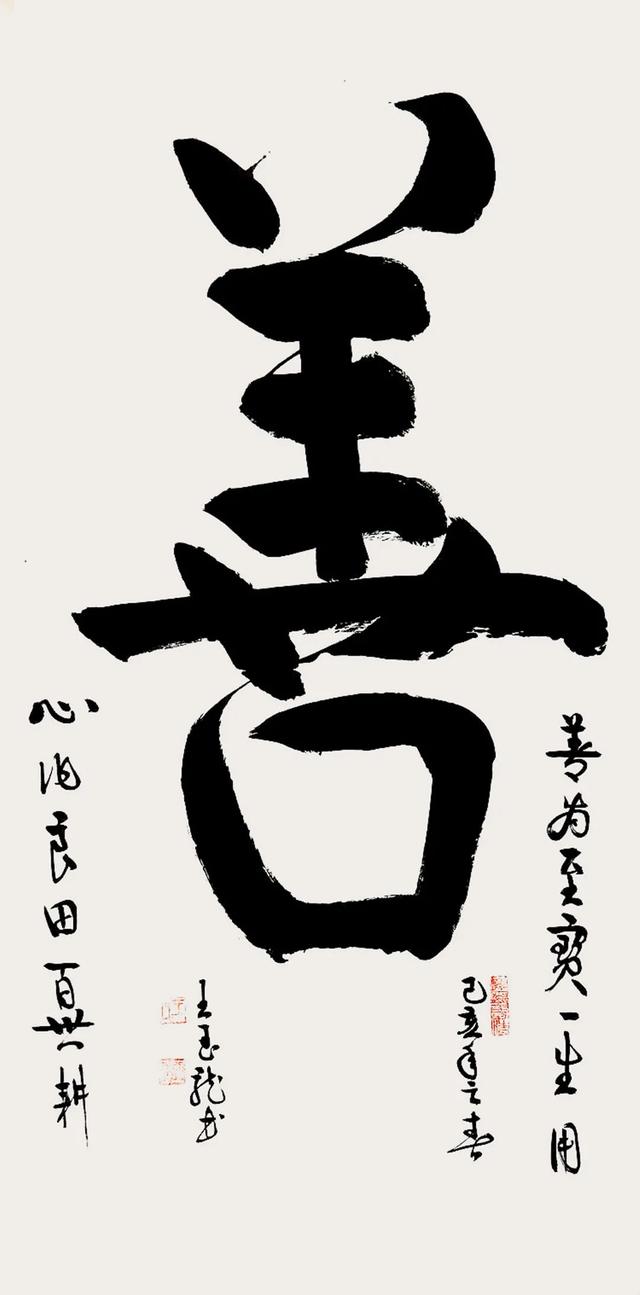 善
善为至寶一生用
心作良田百世耕
己亥年之春
王玉龍书